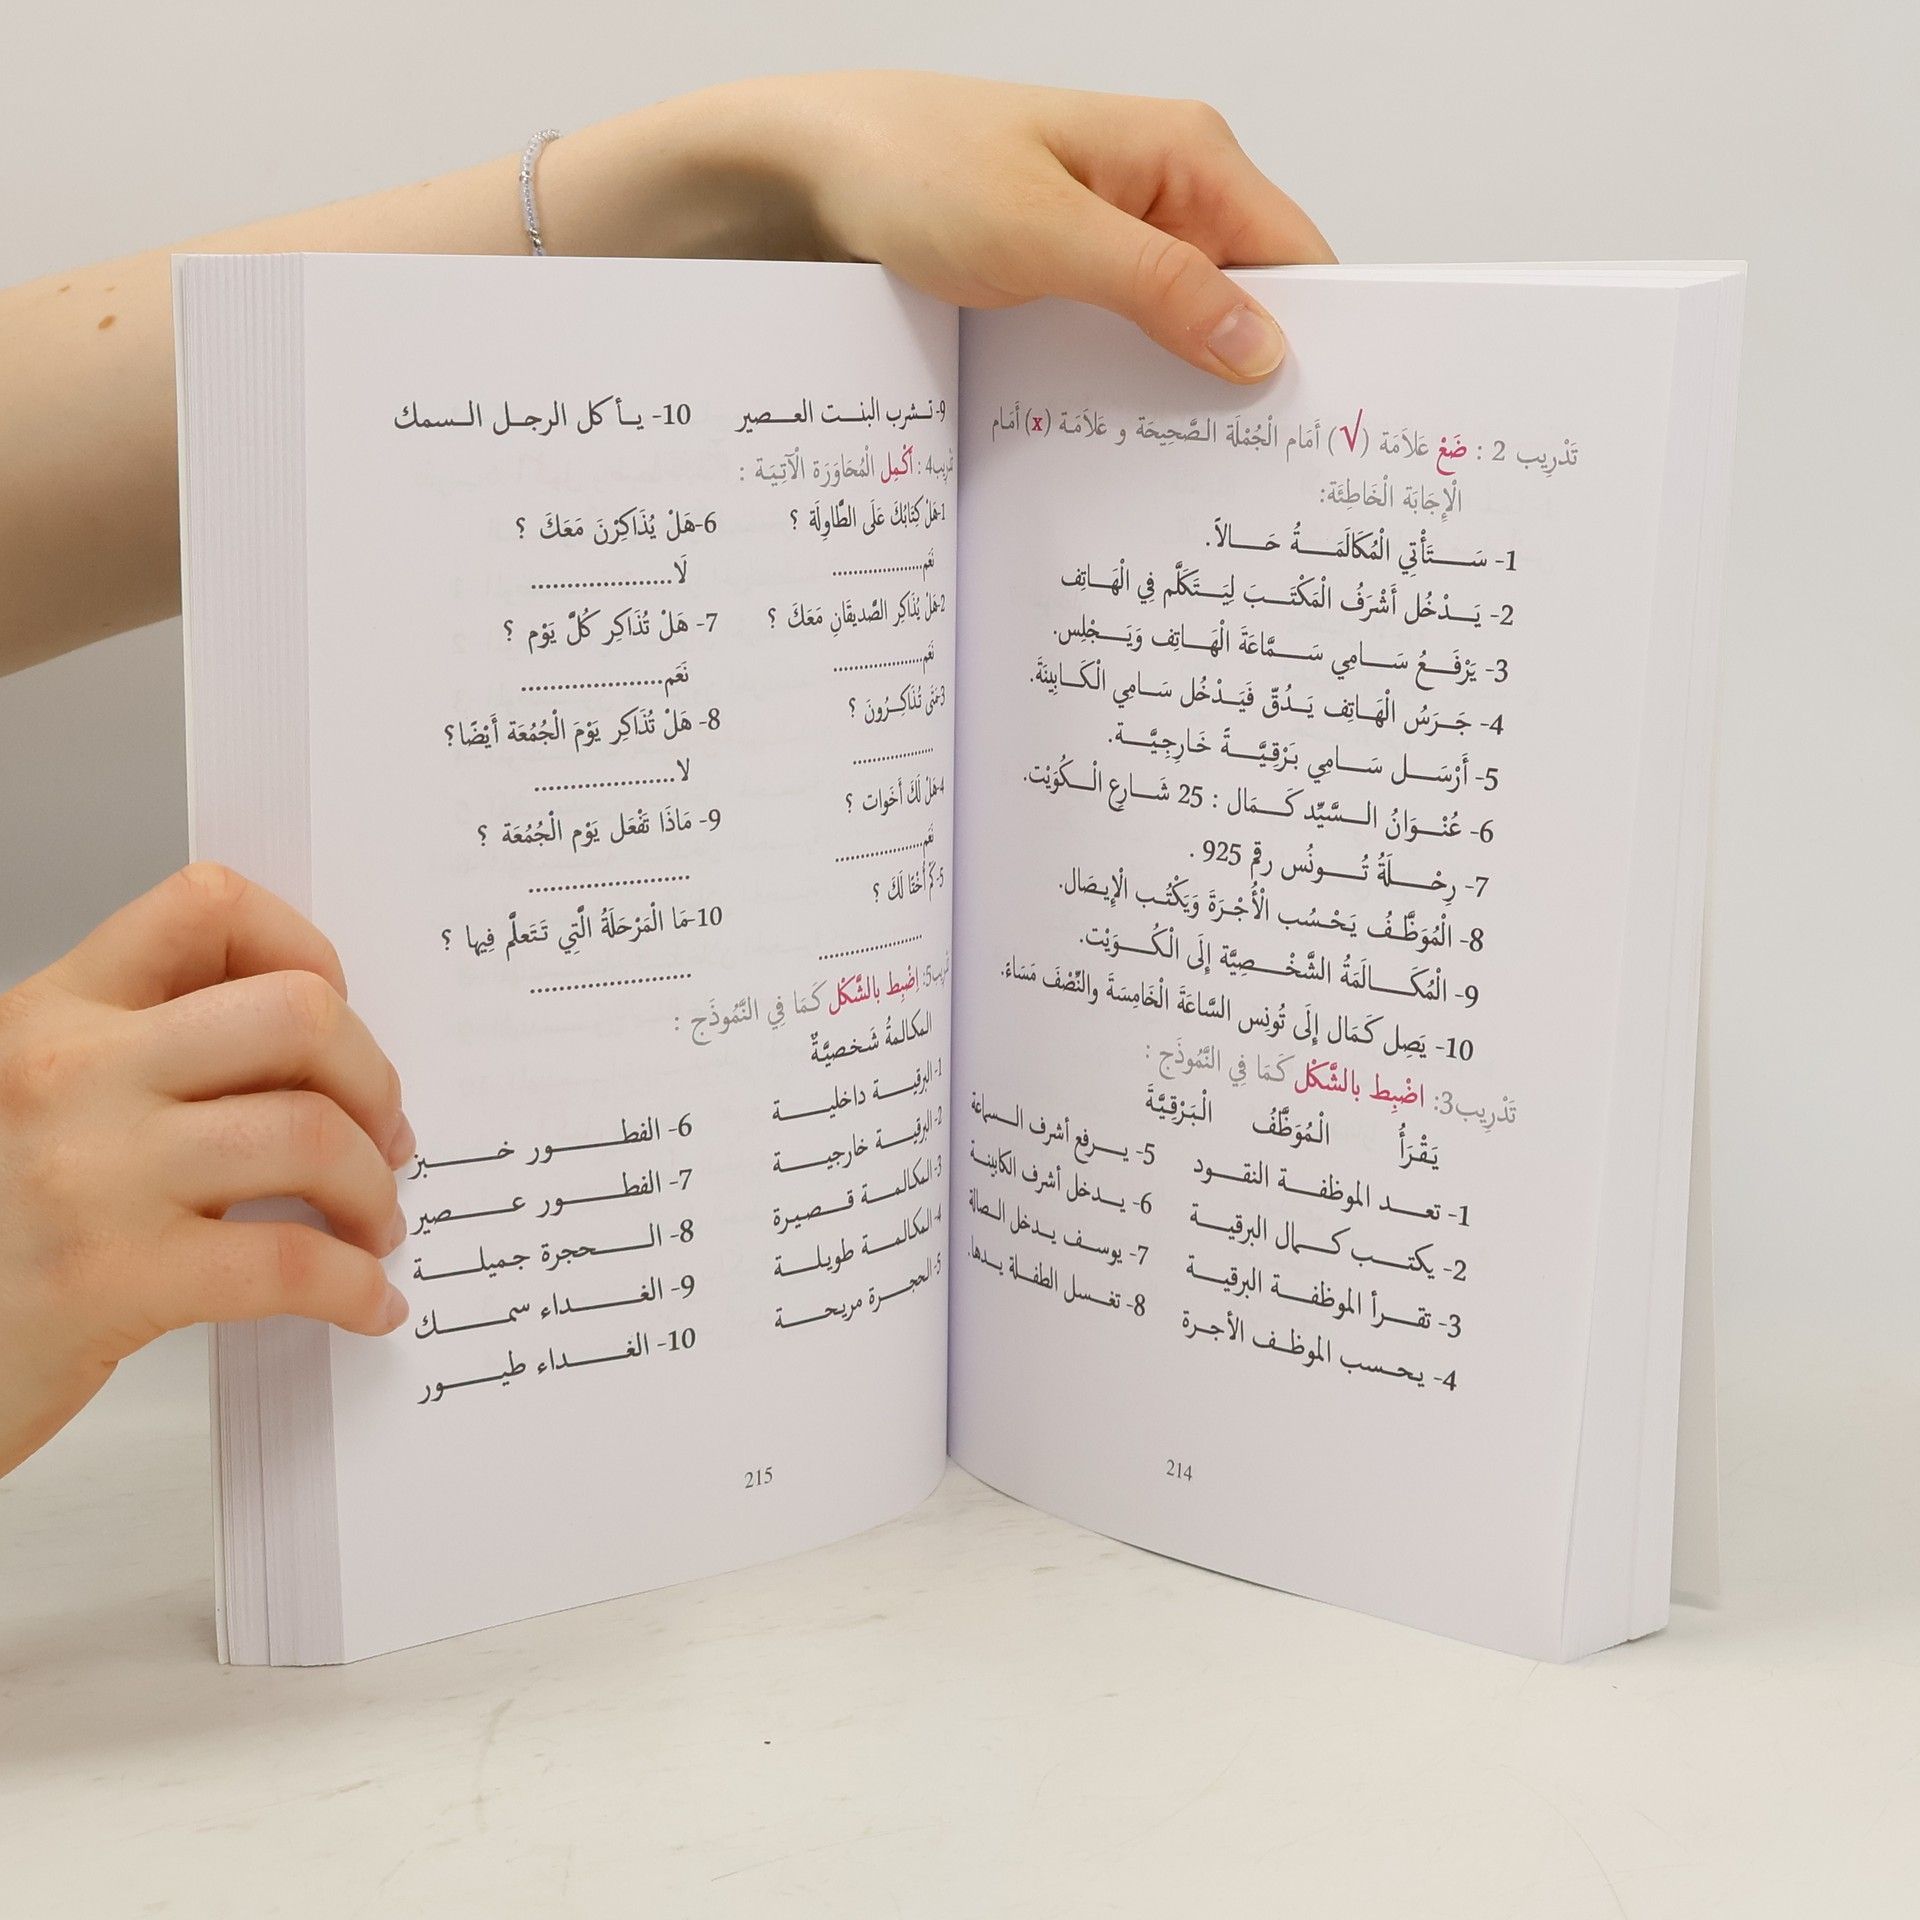 تَدْرِيب 2 : ضَعْ عَلاَمَة (√) أَمَام الْجُمْلَة الصَّحِيحَة و عَلاَمَة (x) أَمَام
الْإِجَابَة الْخَاطِئَة:
1- سَـتَأْتِي الْمُكَالَمَةُ حَـالاً.
2- يَـدْخُل أَشْرَفُ الْمَكْتَـبَ لِيَـتَكَلَّم فِي الْهَـاتِف
3- يَرْفَـعُ سَـامِي سَـمَّاعَةَ الْهَـاتِف وَيَـجْلِس.
4- جَـرَسُ الْهَـاتِف يَـدُقّ فَيَـدْخُل سَـامِي الْكَـابِينَةَ.
5- أَرْسَـل سَـامِي بَرْقِيَّـةً خَارِجِيَّـة.
6- عُنْـوَانُ الـسَّيِّد كَـمَال : 25 شَـارِع الْـكُوَيْت.
7- رِحْـلَةُ تُـونُس رقم 925 .
8- الْمُوَظَّـفُ يَحْسُب الْأُجْـرَةَ وَيَكْتُـب الْإِيـصَال.
9- الْمُكَـالَمَةُ الشَّخْـصِيَّة إِلَى الْكُـوَيْت.
10- يَصِل كَمَال إِلَى تُونِس السَّاعَةَ الْخَامِسَةَ والنِّصْفَ مَسَاءً.
تَدْرِيب3: اضْبِط بالشَّكْل كَمَا فِي النَّمُوذَج :
يَقْرَأُ الْمُوَظَّفُ الْبَرْقِيَّةَ
1- تعـد الموظفـة النقـود
2- يكتـب كـمال البرقيـة
3- تقـرأ الموظفـة البرقيـة
4- يحـسب الموظـف الأجـرة
5- يـرفع أشرف الـسماعة
6- يـدخل أشرف الكابينـة
7- يوسـف يـدخل الـصالة
8- تغـسل الطفلـة يـدها.
214
9- تـشرب البنـت العـصير
10- يـأكل الرجـل الـسمك
4: أَكْمِل الْمُحَاوَرَة الْآتِيَـة :
1-هَلْ كِتَابُكَ عَلَى الطَّاوِلَة ؟
نَعَم....................
2-هَلْ يُذَاكِر الصَّديقَانِ مَعَكَ ؟
نَعَم....................
3-مَتَى تُذَاكِـرُونَ ؟
..................
4-هَلْ لَكَ أَخَوات ؟
نَعَم....................
5-كَمْ أُخْتًا لَكَ ؟
.......................
6-هَلْ يُذَاكِرْنَ مَعَكَ ؟
لَا....................
7- هَلْ تُذَاكِر كُلَّ يَوْم ؟
نَعَم....................
8- هَلْ تُذَاكِر يَوْمَ الْجُمُعَة أَيْضًا؟
لا....................
9- مَاذَا تَفْعَل يَوْم الْجُمُعَة ؟
.......................
10-مَا الْمَرْحَلَةُ الَّتِي تَتَعلَّم فِيها ؟
.......................
5: اِضْبِط بالشَّكْل كَمَا فِي النَّمُوذَج :
المكالمةُ شَخصيَّةٌ
1- البرقيـة داخليـة
2- البرقيـة خارجيـة
3- المكالمـة قـصيرة
4- المكالمـة طويلـة
5- الحجـرة مريحـة
6- الفطـور خـبز
7- الفطـور عـصير
8- الـحجرة جميلـة
9- الغـداء سمـك
10- الغـداء طيـور
215